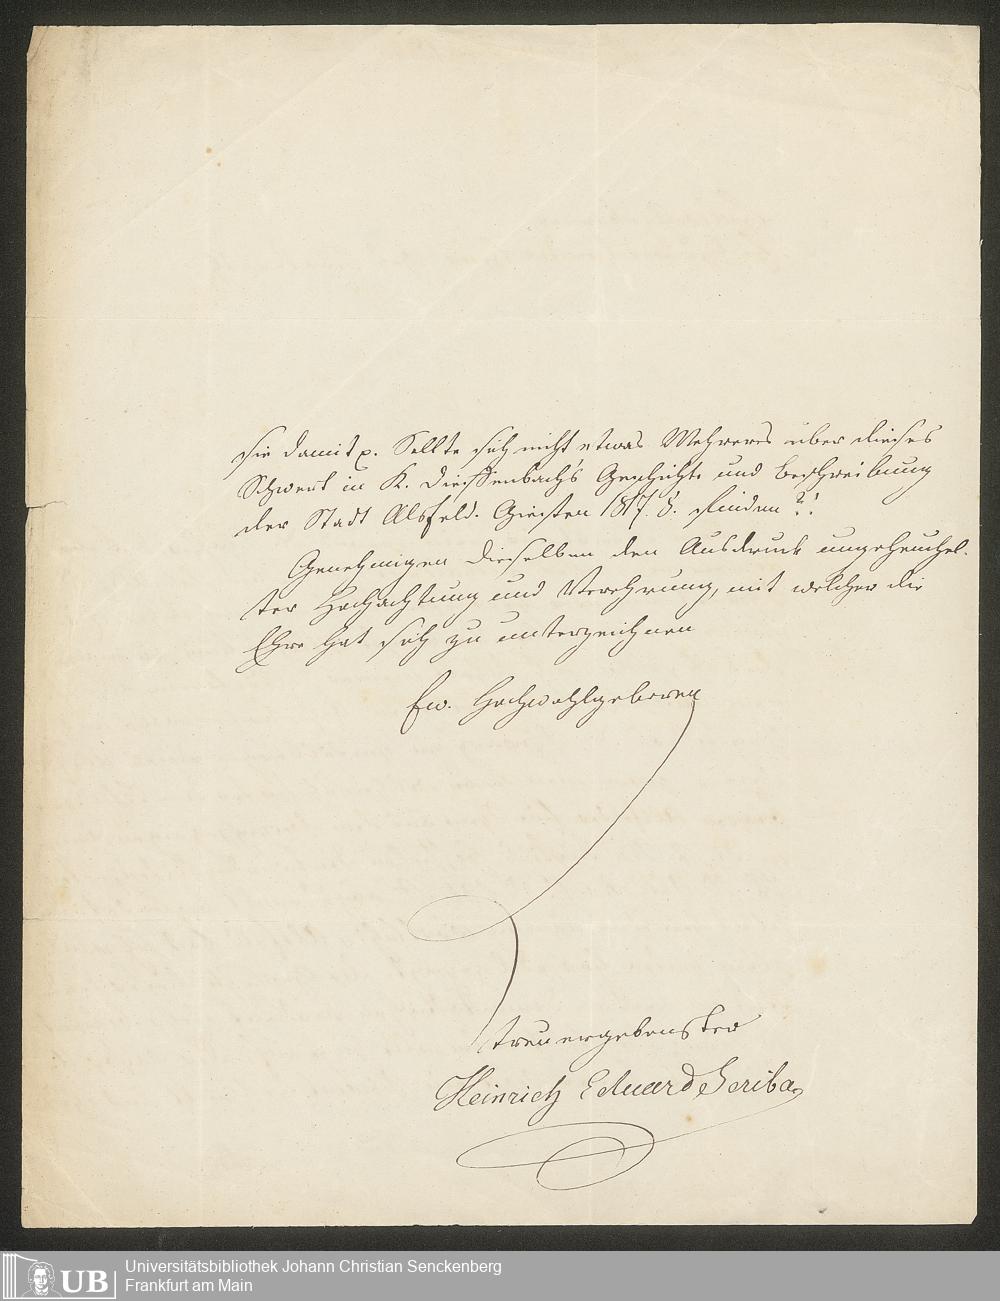 sie damit p. Sollte sich nicht etwas Mehreres über dieses
Schwert in K. Dieffenbach's Geschichte und Beschreibung
der Stadt Alsfeld. Giessen 1817. 8. finden?!
Genehmigen Dieselben den Ausdruck ungeheuchel-
ter Hochachtung und Verehrung, mit welcher die
Ehre hat sich zu unterzeichnen
Ew. Hochwohlgeboren
treuergebenster
Heinrich Eduard Scriba
UB
Universitätsbibliothek Johann Christian Senckenberg
Frankfurt am Main